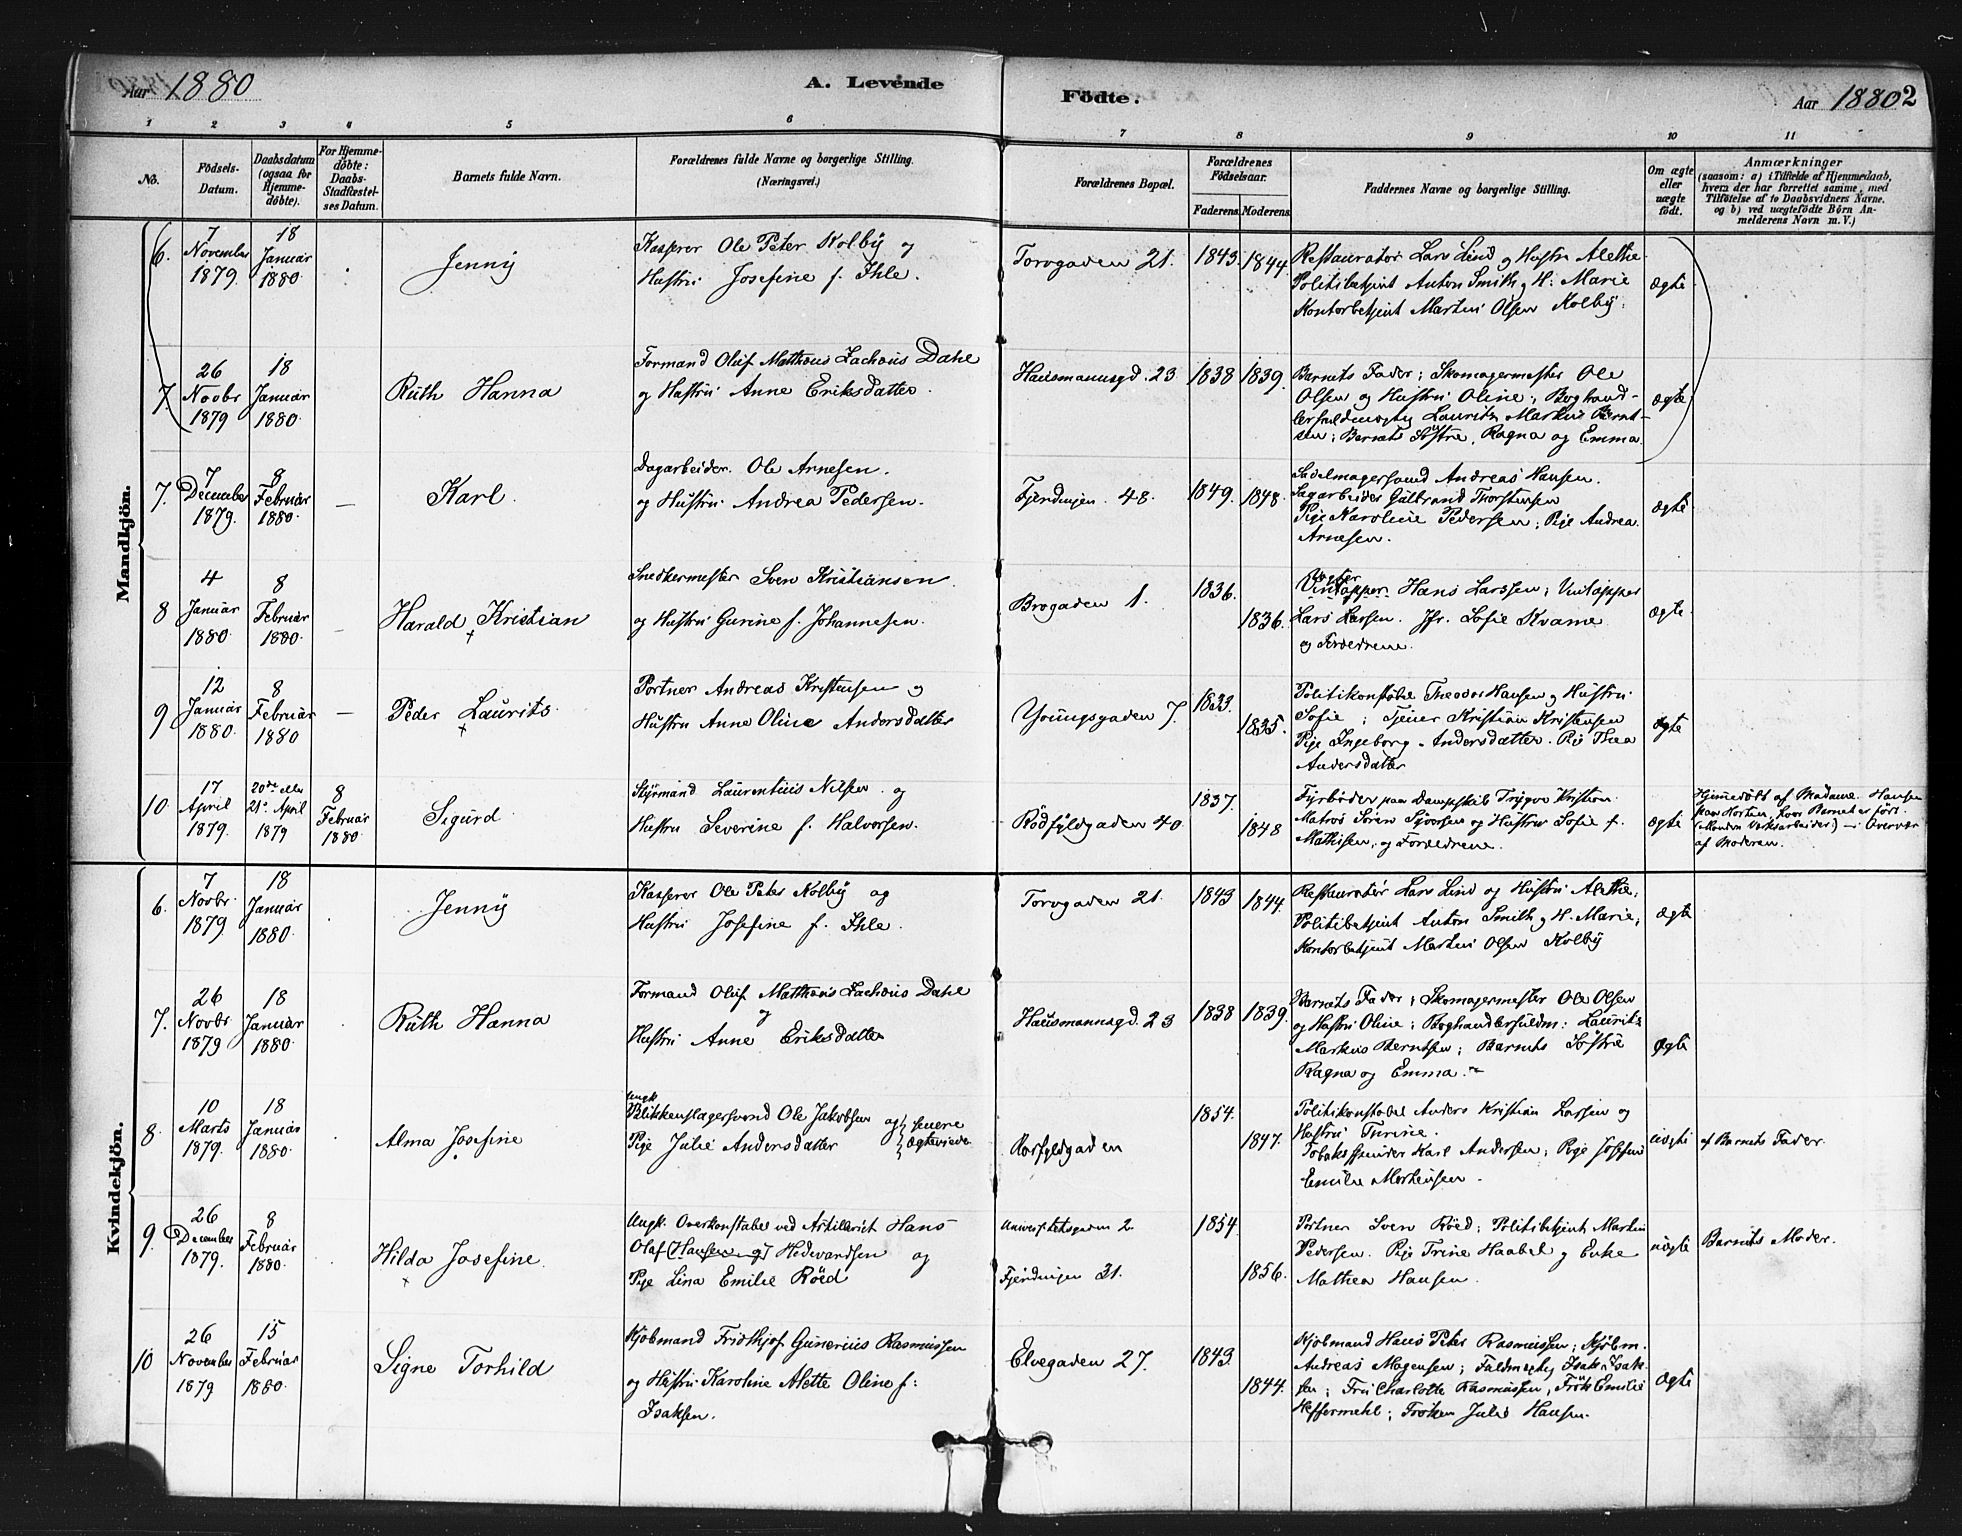 Aar 1880
A. Levende
Fødte.
Aar 1880 2
1 2 3 4 5 6 7 8 9 10 11
No.
Fødsels-
Datum.
Daabsdatum
(ogsaa for
Hjemme-
døbte).
For Hjemme-
døbte:
Daabs-
Stadfæstel-
ses Datum.
Barnets fulde Navn.
Forældrenes fulde Navne og borgerlige Stilling.
(Næringsvei.)
Forældrenes Bopæl.
Forældrenes
Fødselsaar.
Faderens. Moderens.
Faddernes Navne og borgerlige Stilling.
Om ægte
eller
uægte
født.
Anmærkninger
(saasom: a) i Tilfælde af Hjemmedaab,
hvem der har forrettet samme, med
Tilføielse af to Daabsvidners Navne.
og b) ved uægtefødte Børn An-
melderens Navn m. V.)
Mandkjön.
6.
7
November
1879.
18
Januar
1880
Jenny
Kasserer Ole Peter Kolby og
Hustru Josefine f. Ihle.
Torvgaden 21.
1843. 1844.
Restauratør Lars Lind og Hustru Alethe
Politibetjent Anton Smith og H: Marie
Kontorbetjent Martin Olsen Kolby.
ægte
7.
26
Novbr
1879
18
Januar
1880.
Ruth Hanna
Formand Oluf Mathæus Zachæus Dahl
og Hustru Anne Eriksdatter.
Hausmannsgd. 23
1838 1839.
Barnets Fader; Skomagermester Ole
Olsen og Hustru Oline; Boghand-
lerfuldmægtig Laurits Markus Bernt-
sen; Barnets Søstre, Ragna og Emma.
ægte
7.
7
December
1879.
8
Februar
1880.
—
Karl.
Dagarbeider Ole Arnesen.
og Hustru Andrea Pedersen.
Fjerdingen 48.
1849. 1848.
Sadelmagersvend Andreas Hansen.
Dagarbeider Gulbrand Thorstensen
Pige Karoline Pedersen; Pige Andrea
Arnesen.
ægte
8
4
Januar
1880.
8
Februar
1880.
—
Harald Kristian
Snedkermester Sven Kristiansen
og Hustru Gurine f. Johannesen.
Brogaden 1.
1836. 1836.
Vintapper Hans Larssen; Vintapper
Lars Larsen. Jfr. Sofie Kvame
og Forældrene.
ægte.
9
12
Januar
1880.
8
Februar
1880
—
Peder Laurits.
Portner Andreas Kristensen og
Hustru Anne Oline Andersdatter
Youngsgaden 7.
1833. 1835.
Politikonstabel Theodor Hansen og Hustru
Sofie; Tjener Kristian Kristensen
Pige Ingeborg Andersdatter. Pige Thea
Andersdatter
ægte
10.
17
April
1879.
20de eller
21. April
1879
8
Februar
1880.
Sigurd
Styrmand Laurentius Nilsen og
Hustru Severine f. Halvorsen.
Rødfyldgaden 40.
1837. 1848
Fyrbøder paa Dampskib Trygve Kristian
Matros Søren Syversen og Hustru Sofie f.
Mathisen, og Forældrene.
ægte
Hjemmedøbt af Madame Hansen
paa Horten, hvor Barnet er født
(Manden Værksarbeider) – i Overvær
af Moderen.
Kvindekjön.
6.
7
Novbr
1879
18
Januar
1880.
Jenny
Kasserer Ole Peter Kolby og
Hustru Josefine f. Ihle.
Torvgaden 21.
1843 1844.
Restauratør Lars Lind og Hustru Alethe;
Politibetjent Anton Smith og H. Marie;
Kontorbetjent Martin Olsen Kolby
ægte
7.
26
Novbr
1879
18
Januar
1880.
Ruth Hanna
Formand Oluf Mathæus Zachæus Dahl
og
Hustru Anne Eriksdatter
Hausmannsgd. 23
1838 1839.
Barnets Fader; Skomagermester Ole Olsen
og Hustru Oline; Boghandlerfuldm: Laurits
Markus Berntsen; Barnets Søstre
Ragna og Emma.
ægte
8.
10
Marts
1879.
18
Januar
1880.
Alma Josefine
Ungk.
Blikkenslagersvend Ole Jakobsen og
Pige Julie Andersdatter
senere
ægteviede
Rosfyldgaden
1854. 1847.
Politikonstabel Anders Kristian Larsen og
Hustru Turine.
Tobaksspinder Karl Andersen; Pige Josefine
Emilie Mortensen.
uægte
af Barnets Fader.
9.
26
December
1879.
8
Februar
1880.
Hilda Josefine.
Ungk. Overkonstabel ved Artilleriet Hans
Olaf (Hansen) Hedevardsen og
Pige Lina Emilie Röed
Universitetsgaden 2
Fjerdingen 31.
1854. 1856.
Portner Sven Röed; Politibetjent Martin
Pedersen. Pige Trine Haabel og Enke
Mathea Hansen.
uægte
Barnets Moder.
10
26
November
1879
15
Februar
1880.
Signe Torhild
Kjøbmand Fridthjof Gunerius Rasmussen
og Hustru Karoline Alette Oline f:
Isaksen.
Elvegaden 27.
1843. 1844.
Kjøbmand Hans Peter Rasmussen; Kjøbm.
Andreas Mogensen; Fuldmægtig Isak Isak-
sen; Fru Charlotte Rasmussen, Frøk Emilie
Heffermehl; Frøken Julie Hansen.
ægte